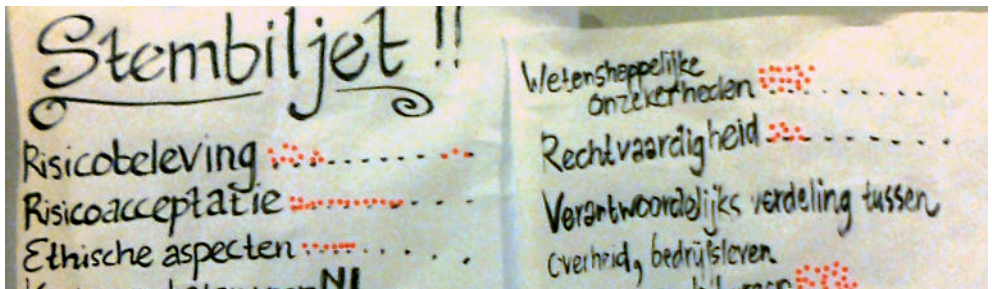 Stembiljet!!
Risicobeleving
Risicoacceptatie
Ethische aspecten
NL
Wetenshappelijke
onzekerheden
Rechtvaardigheid
Verantwoordelijks verdeling tussen
overheid, bedrijfsleven